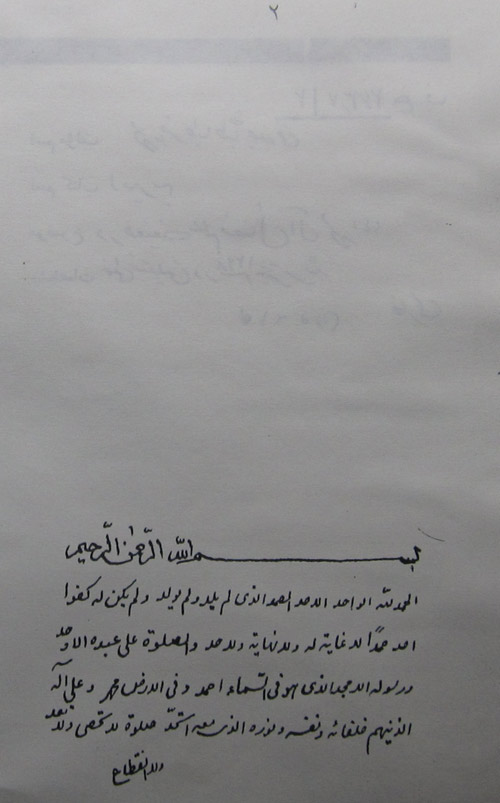 ٢
بسم الله الرّحمن الرّحيم
الحمد لله الواحد الاحد الصمد الذى لم يلد ولم يولد ولم يكن له كفوا
احد حمدًا لا غاية له ولا نهاية ولا حد والصلوة على عبده الاوحد
ورسوله الامجد الذى هو فى السّماء احمد و فى الارض محمد وعلى آله
الذينهم خلفائه ونفسه ونوره الذى معه اتّحد صلوة لا تحصى ولا تعد
ولا انقطاع